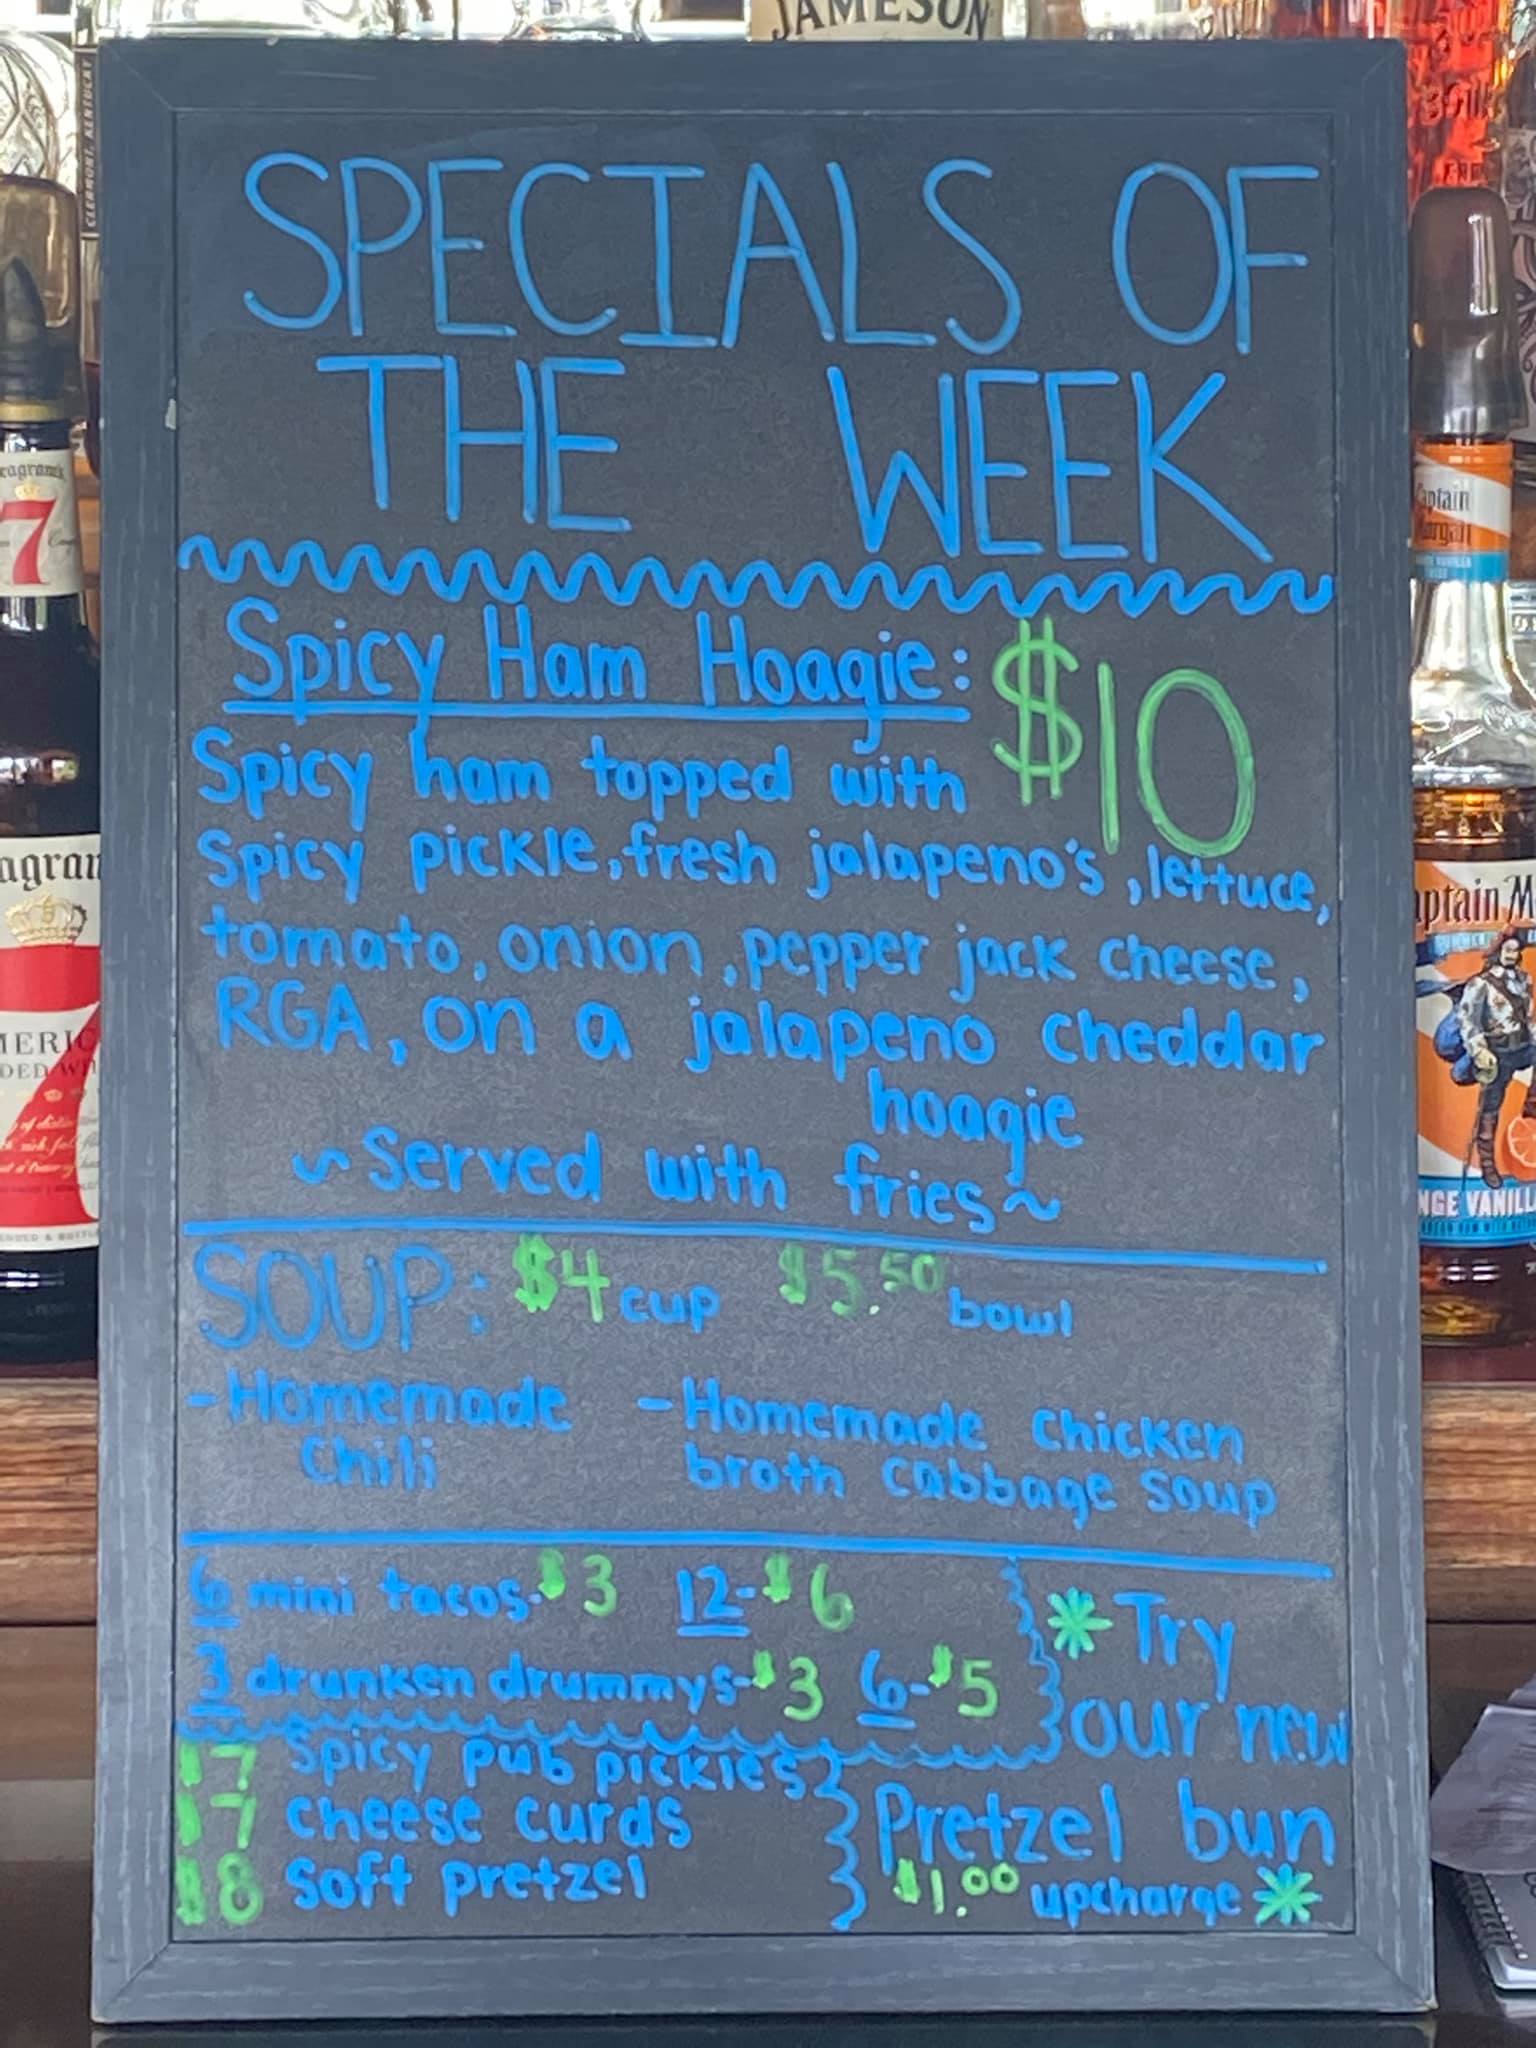 JAMESON
CLERMONT, KENTUCKY
SPECIALS OF
THE WEEK
Spicy Ham Hoagie: $10
Spicy ham topped with
Spicy pickle, fresh jalapeno's, lettuce,
tomato, onion, pepper jack cheese,
RGA, on a jalapeno cheddar
hoagie
~ Served with fries ~
SOUP: $4 cup $5.50 bowl
- Homemade
Chili
- Homemade chicken
broth cabbage soup
6 mini tacos - $3 12 - $6
3 drunken drummys - $3 6 - $5
* Try
our new
Pretzel bun
$1.00 upcharge *
$7 Spicy pub pickles
$7 cheese curds
$8 Soft pretzel
7
7
Captain
Morgan